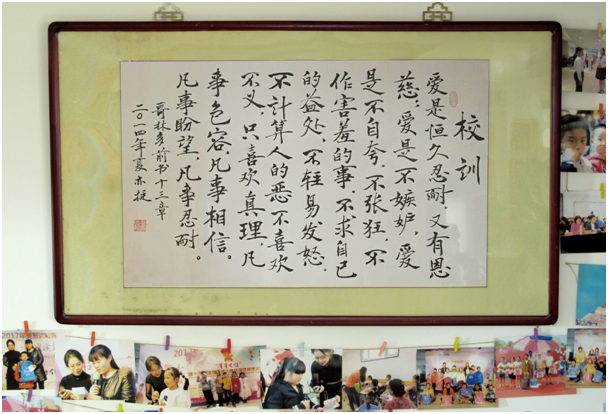 校训
爱是恒久忍耐，又有恩
慈；爱是不嫉妒，爱
是不自夸，不张狂，不
作害羞的事，不求自己
的益处，不轻易发怒，
不计算人的恶不喜欢
不义，只喜欢真理，凡
事包容凡事相信。
凡事盼望，凡事忍耐。
哥林多前书十三章
二〇一四年夏
2017
2017